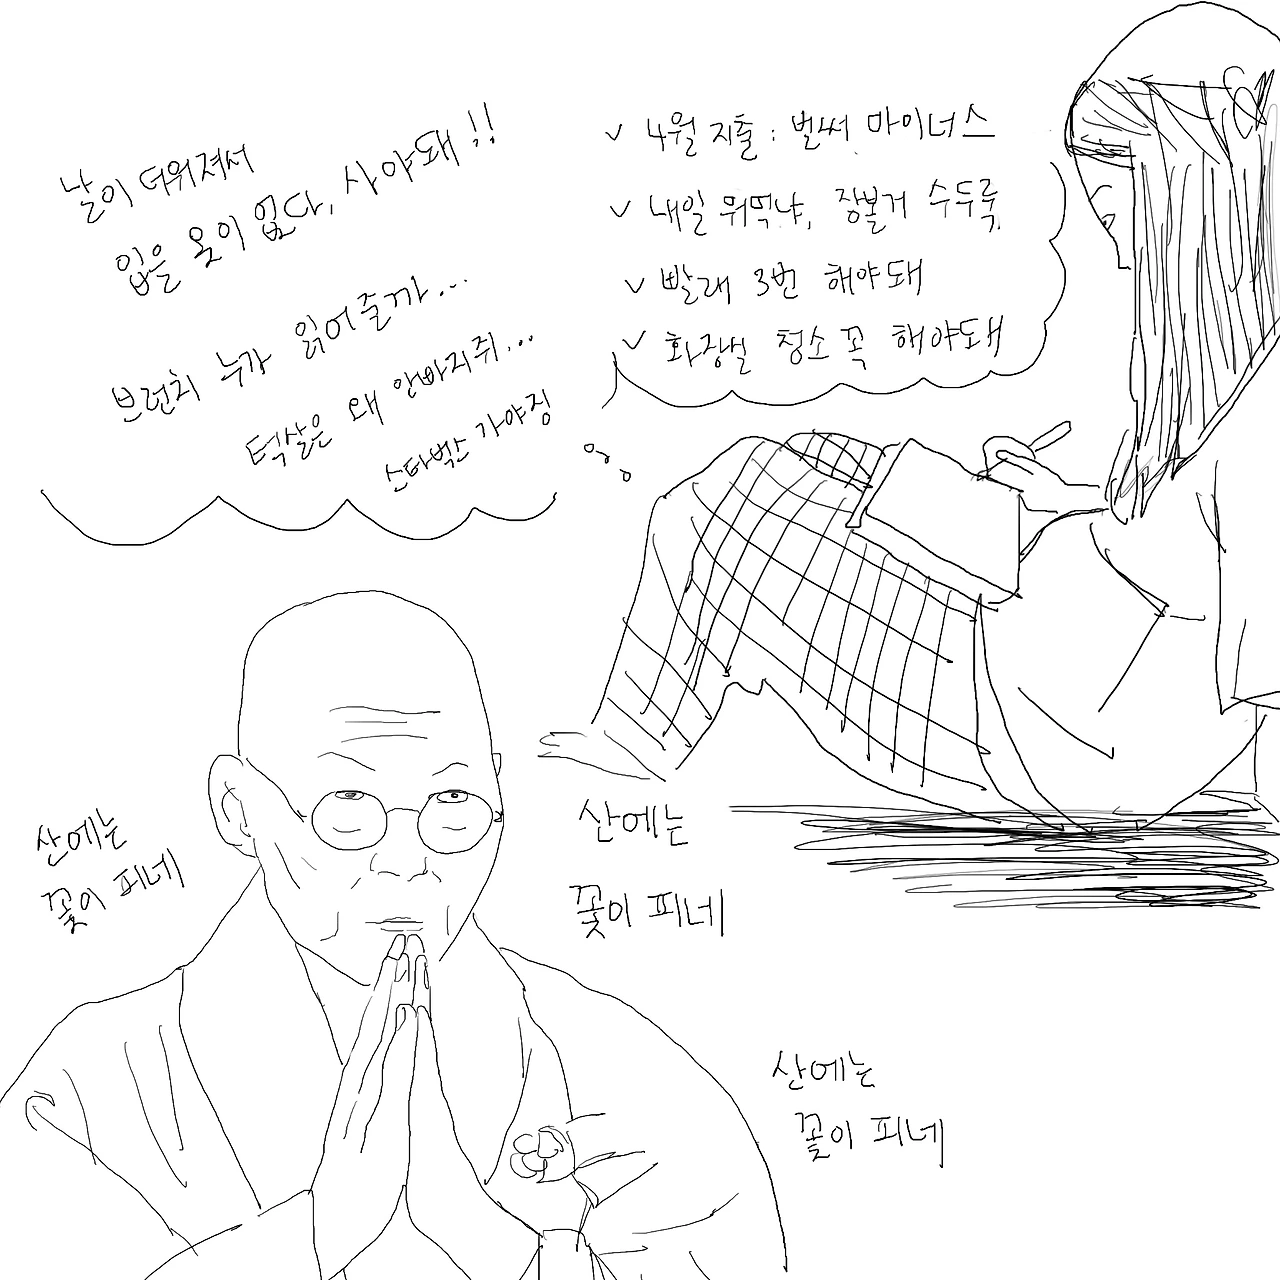 날이 더워져서
입을 옷이 없다, 사야돼!!
브런치 누가 읽어줄까...
턱살은 왜 안빠지쥐...
스타벅스 가야징
✓ 4월 지출 : 벌써 마이너스
✓ 내일 뭐먹냐, 장볼거 수두룩
✓ 빨래 3번 해야돼
✓ 화장실 청소 꼭 해야돼
산에는
꽃이 피네
산에는
꽃이 피네
산에는
꽃이 피네